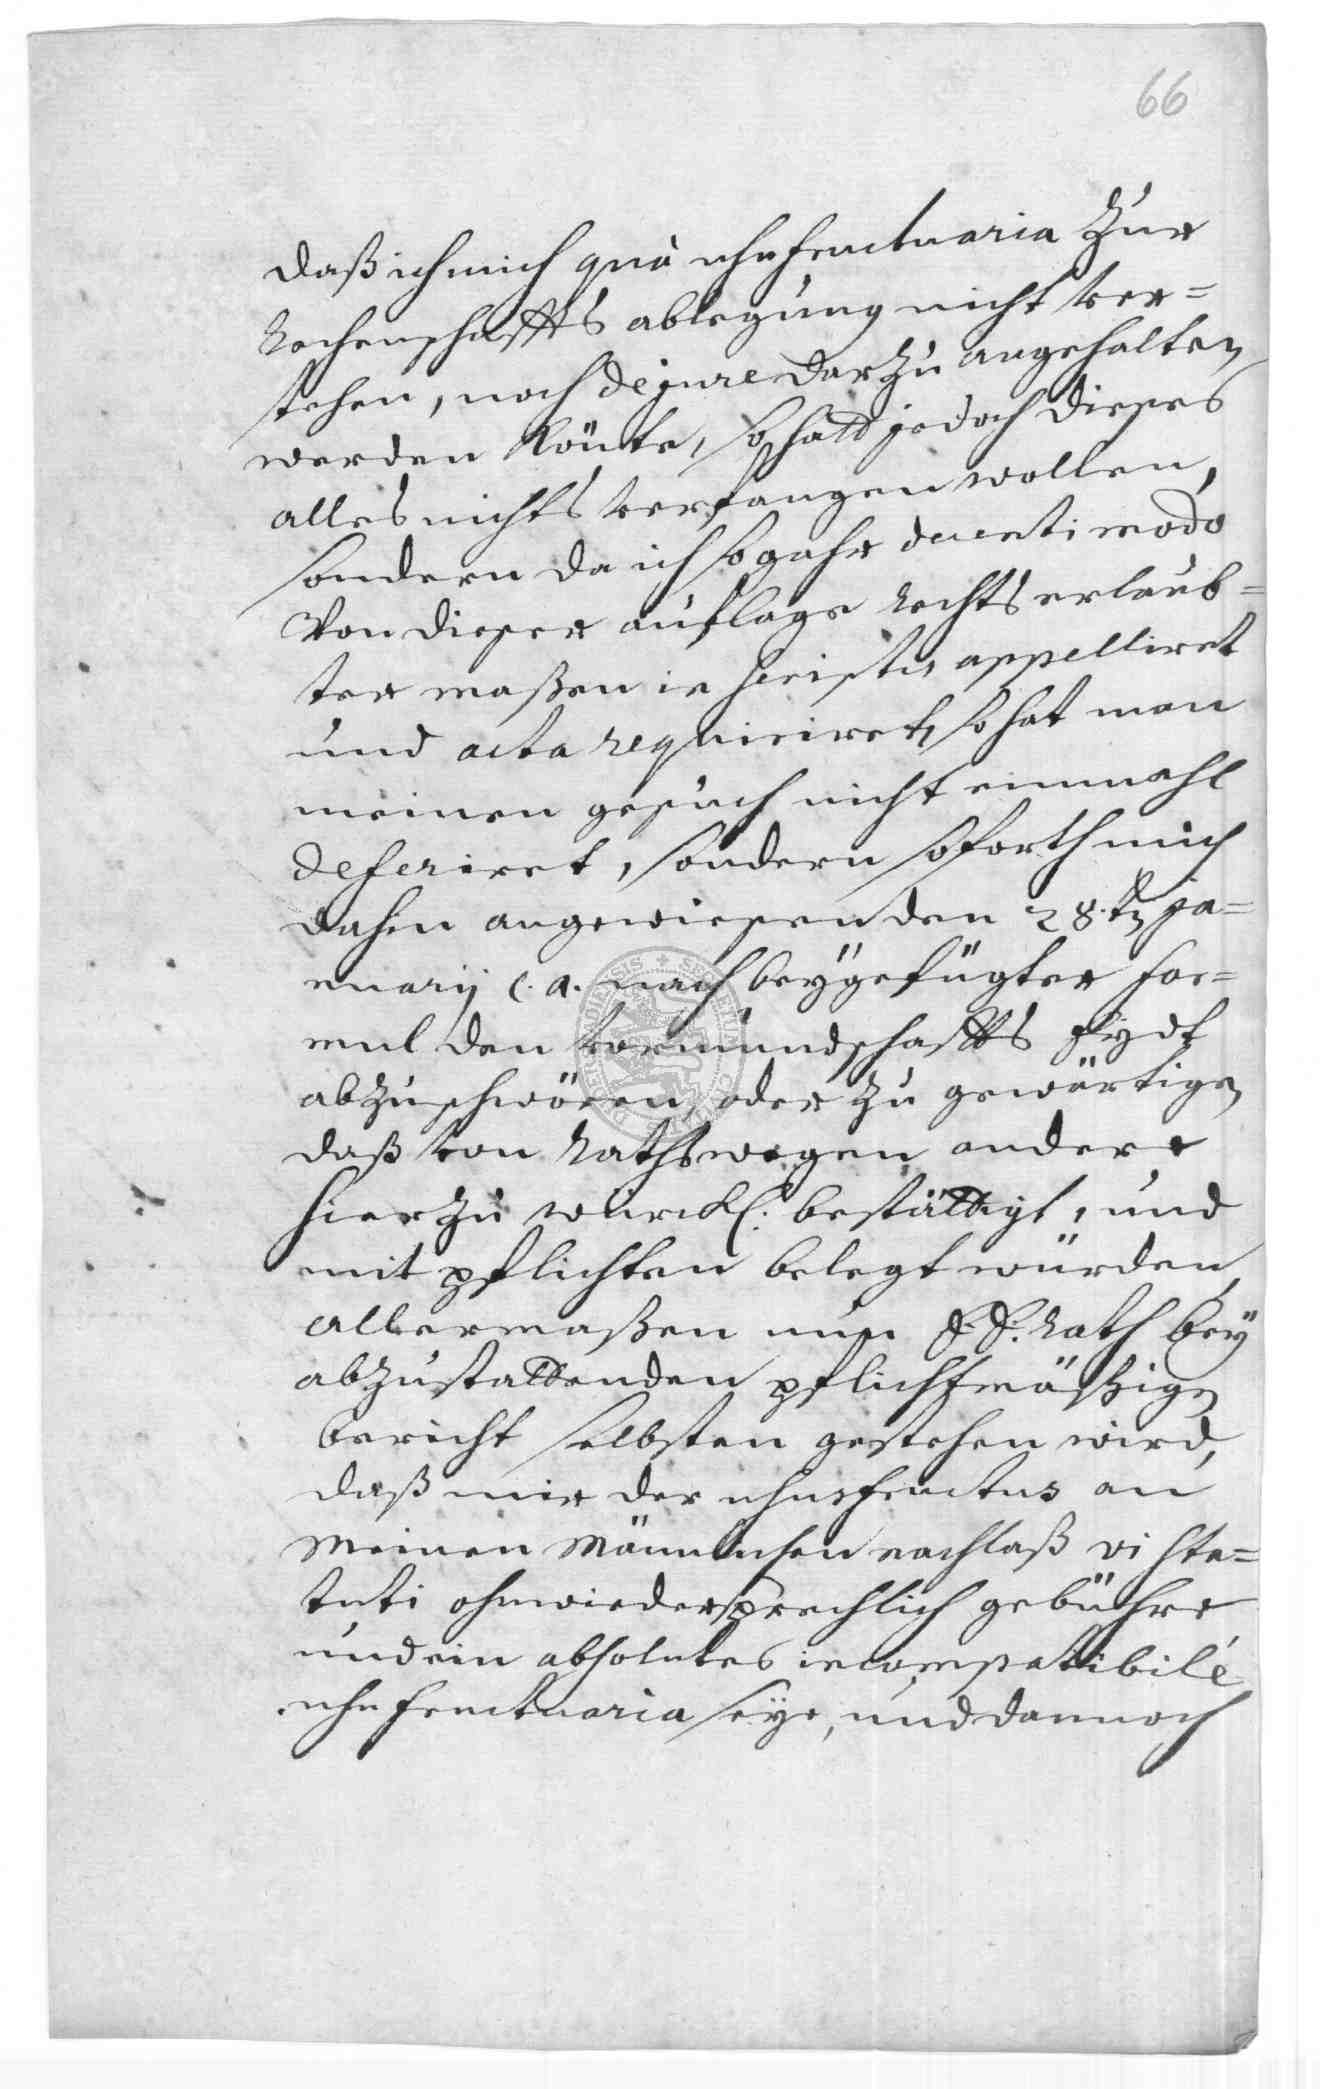 66
daß ich mich quà usufructuaria Zur
Rechenschaffts ablegung nicht ver=
stehen, noch de jure darzu angehalten
werden könte, so hatt jedoch dieses
alles nichts verfangen wollen,
sondern da ich so gahr decenti modo
Von dieser auflage Rechts erlaub=
ter maßen in scriptis appelliret
und acta requiriret, so hat man
meinen gesuch nicht einmahl
deferiret, sondern soforth mich
dahin angewiesen den 28.ten Ja=
nuarij c. a. nach beygefügter for=
mul den vormundschaffts Eydt
abzuschwören, oder zu gewärtigen
daß von Raths wegen andere
hierzu würckl. bestättigt, und
mit pflichten belegt würden,
allermaßen nun E. E. Rath bey
abzustattenden pflichtmäßigen
bericht selbsten gestehen wird,
daß mir der ususfructus an
meinen Männlichen nachlaß vi sta=
tuti ohnwiedersprechlich gebühre
und ein absolutes incompatibile
usufructuaria seye, und dannoch